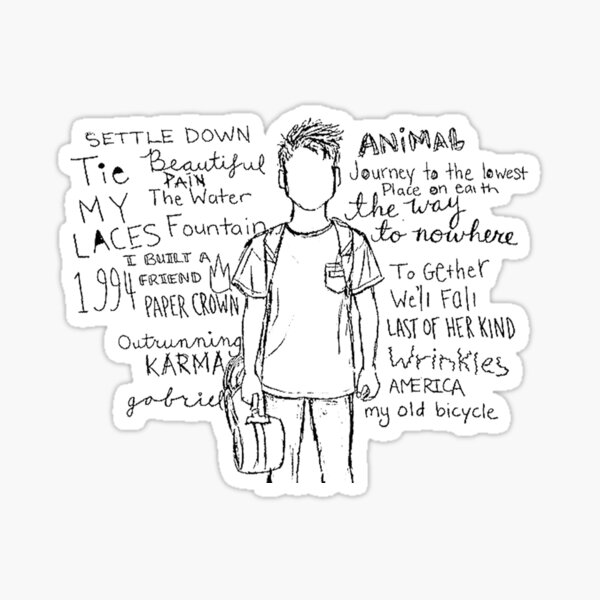 SETTLE DOWN
Tie
MY
LACES
Beautiful
PAIN
The Water
Fountain
I BUILT A
FRIEND
1994
PAPER CROWN
Outrunning
KARMA
gabriel
ANiMAL
Journey to the lowest
Place on earth
the way
to nowhere
To GeTher
We'll Fall
LAST OF HER KIND
Wrinkles
AMERICA
my old bicycle